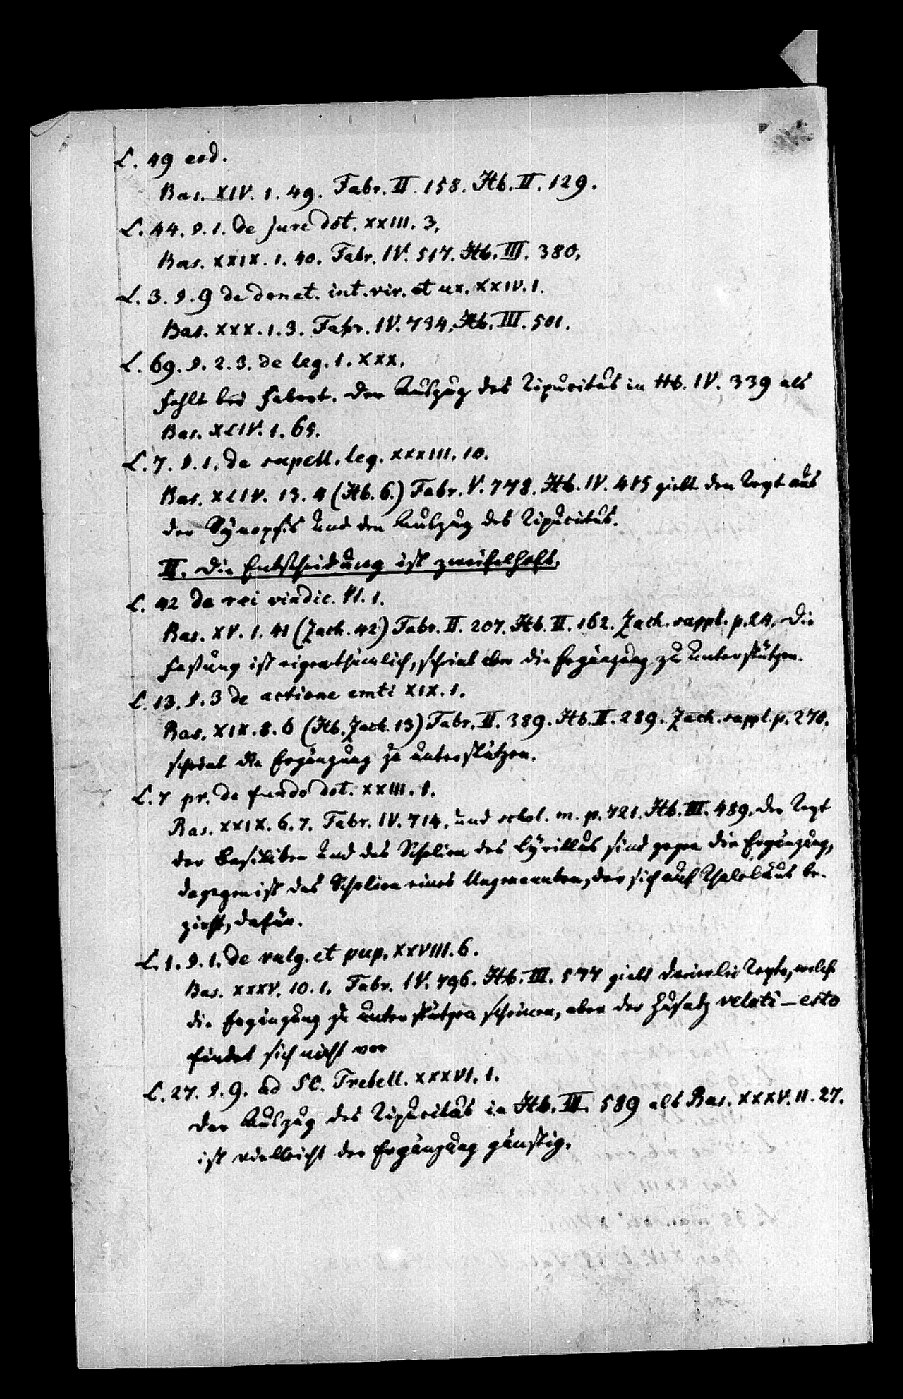 L. 49 eod.
Bas. XIV. 1. 49. Fabr. II. 158. Hb. II. 129.
L. 44. §. 1. de jure dot. XXIII. 3.
Bas. XXIX. 1. 40. Fabr. IV. 517. Hb. III. 380.
L. 3. §. 9 de donat. int. vir. et ux. XXIV. 1.
Bas. XXX. 1. 3. Fabr. IV. 734. Hb. III. 501.
L. 69. §. 2. 3. de leg. 1. XXX.
fehlt bei Fabrot. Der Auszug des Tipucitus in Hb. IV. 339 als
Bas. XLIV. 1. 69.
L. 7. §. 1. de supell. leg. XXXIII. 10.
Bas. XLIV. 13. 4 (Hb. 6.) Fabr. V. 778. Hb. IV. 415 giebt den Text aus
der Synopsis und den Auszug des Tipucitus.
II. Die Entscheidung ist zweifelhaft.
L. 42 de rei vindic. VI. 1.
Bas. XV. 1. 41 (Zach. 42) Fabr. II. 207. Hb. II. 162. Zach. suppl. p. 24. Die
Fassung ist eigenthümlich, scheint aber die Ergänzung zu unterstützen.
L. 13. §. 3 de actione emti XIX. 1.
Bas. XIX. 8. 6 (Hb. Zach. 13) Fabr. II. 389. Hb. II. 289. Zach. suppl. p. 270.
scheint die Ergänzung zu unterstützen.
L. 7 pr. de fundo dot. XXIII. 1.
Bas. XXIX. 6. 7. Fabr. IV. 714. und schol. m. p. 721. Hb. III. 489. Der Text
der Basiliken und das Scholion des Cyrillus sind gegen die Ergänzung,
dagegen ist das Scholion eines Ungenannten, der sich auf Thaleläus be-
zieht, dafür.
L. 1. §. 1. de vulg. et pup. XXVIII. 6.
Bas. XXXV. 10. 1. Fabr. IV. 796. Hb. III. 577 giebt dreierlei Texte, welche
die Ergänzung zu unterstützen scheinen, aber der Zusatz veluti – esto
findet sich nicht vor
L. 27. §. 9. ad SC. Trebell. XXXVI. 1.
Der Auszug des Tipucitus in Hb. III. 589 als Bas. XXXV. 11. 27.
ist vielleicht der Ergänzung günstig.